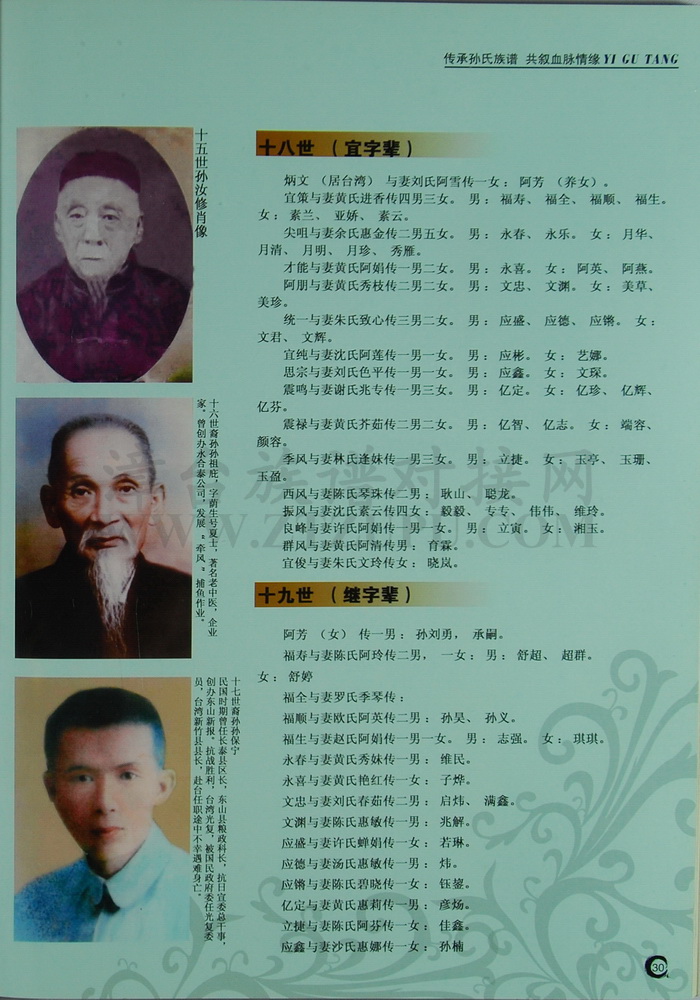 传承孙氏族谱 共叙血脉情缘 YI GU TANG
十五世孙汝修肖像
十六世裔孙孙祖庇，字荫生号夏士，著名老中医，企业
家。曾创办永合泰公司，发展“牵风”捕鱼作业。
十七世裔孙孙保宁
民国时期曾任长泰县区长，东山县粮政科长，抗日宣委总干事，
创办东山新报。抗战胜利，台湾光复，被国民政府委任光复委
员，台湾新竹县县长，赴台任职途中不幸遇难身亡。
十八世 （宜字辈）
炳文（居台湾）与妻刘氏阿雪传一女：阿芳（养女）。
宜策与妻黄氏进香传四男三女。男：福寿、福全、福顺、福生。
女：素兰、亚娇、素云。
尖咀与妻余氏惠金传二男五女。男：永春、永乐。女：月华、
月清、月明、月珍、秀雁。
才能与妻黄氏阿娟传一男二女。男：永喜。女：阿英、阿燕。
阿朋与妻黄氏秀枝传二男二女。男：文忠、文渊。女：美草、
美珍。
统一与妻朱氏致心传三男二女。男：应盛、应德、应锵。女：
文君、文辉。
宜纯与妻沈氏阿莲传一男一女。男：应彬。女：艺娜。
思宗与妻刘氏色平传一男一女。男：应鑫。女：文琛。
震鸣与妻谢氏兆专传一男三女。男：亿定。女：亿珍、亿辉、
亿芬。
震禄与妻黄氏芥茹传二男二女。男：亿智、亿志。女：端容、
颜容。
季风与妻林氏逢妹传一男三女。男：立捷。女：玉亭、玉珊、
玉盈。
西风与妻陈氏琴珠传二男：耿山、聪龙。
振风与妻沈氏素云传四女：毅毅、专专、伟伟、维玲。
良峰与妻许氏阿娟传一男一女。男：立寅。女：湘玉。
群风与妻黄氏阿清传男：育霖。
宜俊与妻朱氏文玲传女：晓岚。
十九世 （继字辈）
阿芳（女）传一男：孙刘勇，承嗣。
福寿与妻陈氏阿玲传二男，一女：男：舒超、超群。
女：舒婷
福全与妻罗氏季琴传：
福顺与妻欧氏阿英传二男：孙昊、孙义。
福生与妻赵氏阿娟传一男一女。男：志强。女：琪琪。
永春与妻黄氏秀妹传一男：维民。
永喜与妻黄氏艳红传一女：子烨。
文忠与妻刘氏春茹传二男：启炜、满鑫。
文渊与妻陈氏惠敏传一男：兆解。
应盛与妻许氏蝉娟传一女：若琳。
应德与妻汤氏惠敏传一男：炜。
应锵与妻陈氏碧晓传一女：钰鋆。
亿定与妻黄氏惠莉传一男：彦炀。
立捷与妻陈氏阿芬传一女：佳鑫。
应鑫与妻沙氏惠娜传一女：孙楠
30
漳台族谱对接网